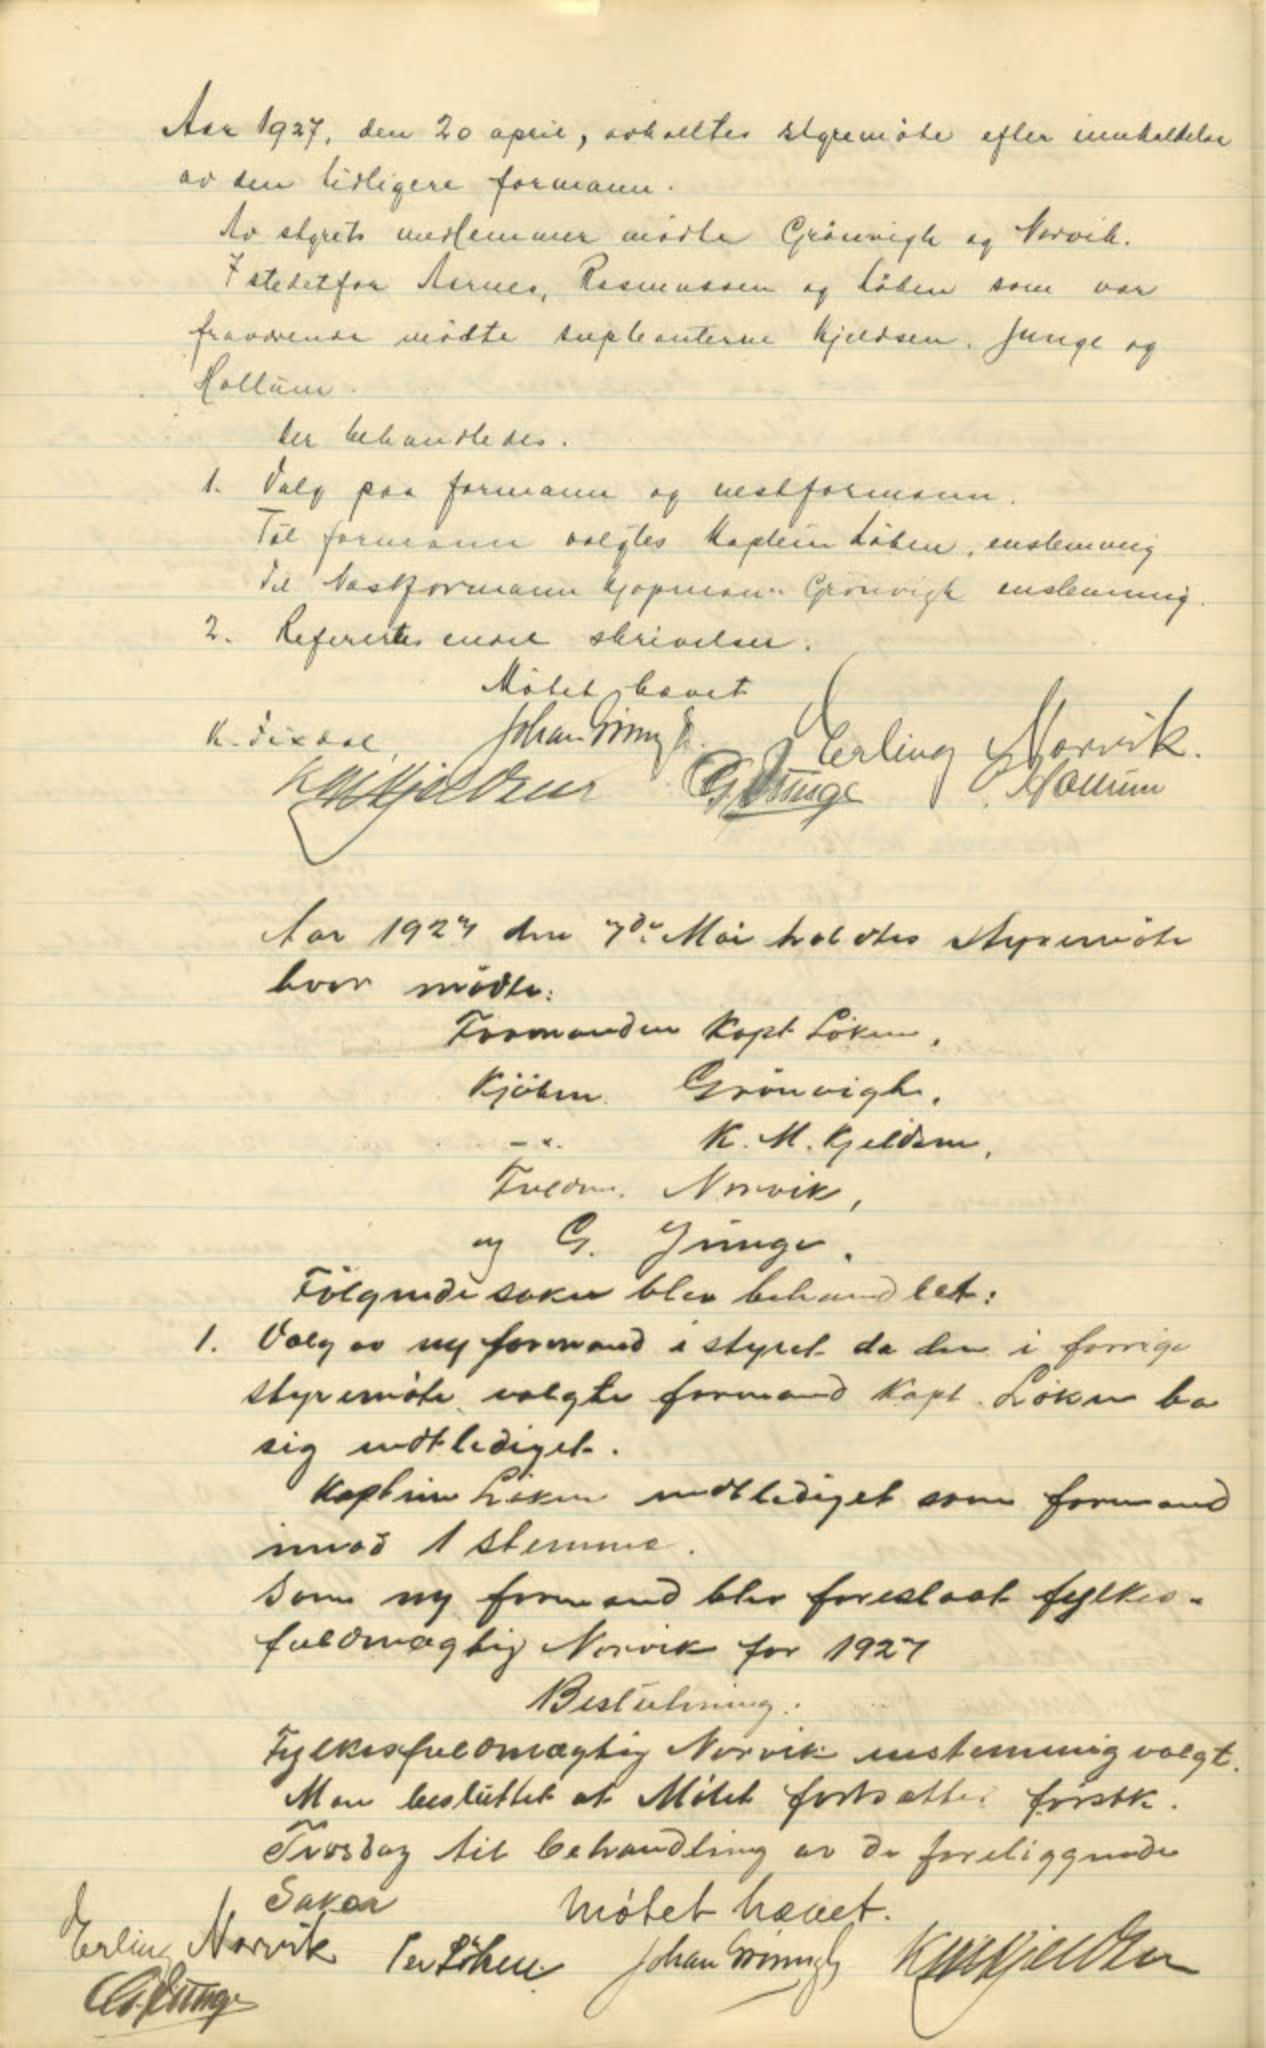 Aar 1927, den 20 april, avholltes styremöte efter innkaldelse
av den tidligere formann.
Av styrets medlemmer mödte Grönvigh og Norvik.
I stedetfor Aarnes, Rasmussen og Löken som var
fraværende mödte supleanterne Kjeldsen, Junge og
Hollum.
Der behandledes.
1. Valg paa formann og nestformann.
Til formann valgtes Kaptein Löken, enstemmig
Til Næstformann Kjøpmann Grönvigh enstemmig.
2. Refertes endel skrivelser.
Mötet hævet
Johan Grönvigh. Erling Norvik.
K M Kjeldsen G. Junge Hollum
Aar 1927 den 7de Mai holdtes styremöte
hvor mödte:
Formanden Kapt Löken,
Kjöbm. Grönvigh,
-"- K. M. Kjeldsen,
Fuldm. Norvik,
og G. Junge.
Fölgende saker blev behandlet:
1. Valg av ny formand i styret da den i forrige
styremöte valgte formand Kapt. Löken ba
sig undtlediget.
Kaptein Löken undtlediget som formand
imod 1 stemme.
Som ny formand blev foreslaat fylkes-
fuldmægtig Norvik for 1927
Beslutning:
Fylkesfuldmægtig Norvik enstemmig valgt.
Man besluttet at Mötet fortsætter förstk.
Tirsdag til behandling av de foreliggende
Saker Mötet hævet.
Erling Norvik Per Löken. Johan Grönvigh K M Kjeldsen
G. Junge